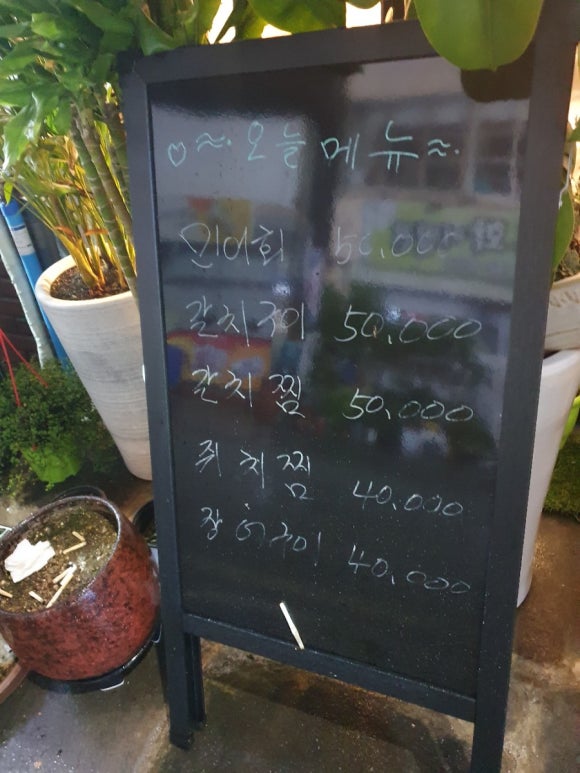 ♡≈·오늘메뉴≈·
민어회 50,000
갈치구이 50,000
갈치찜 50,000
쥐치찜 40,000
장어구이 40,000